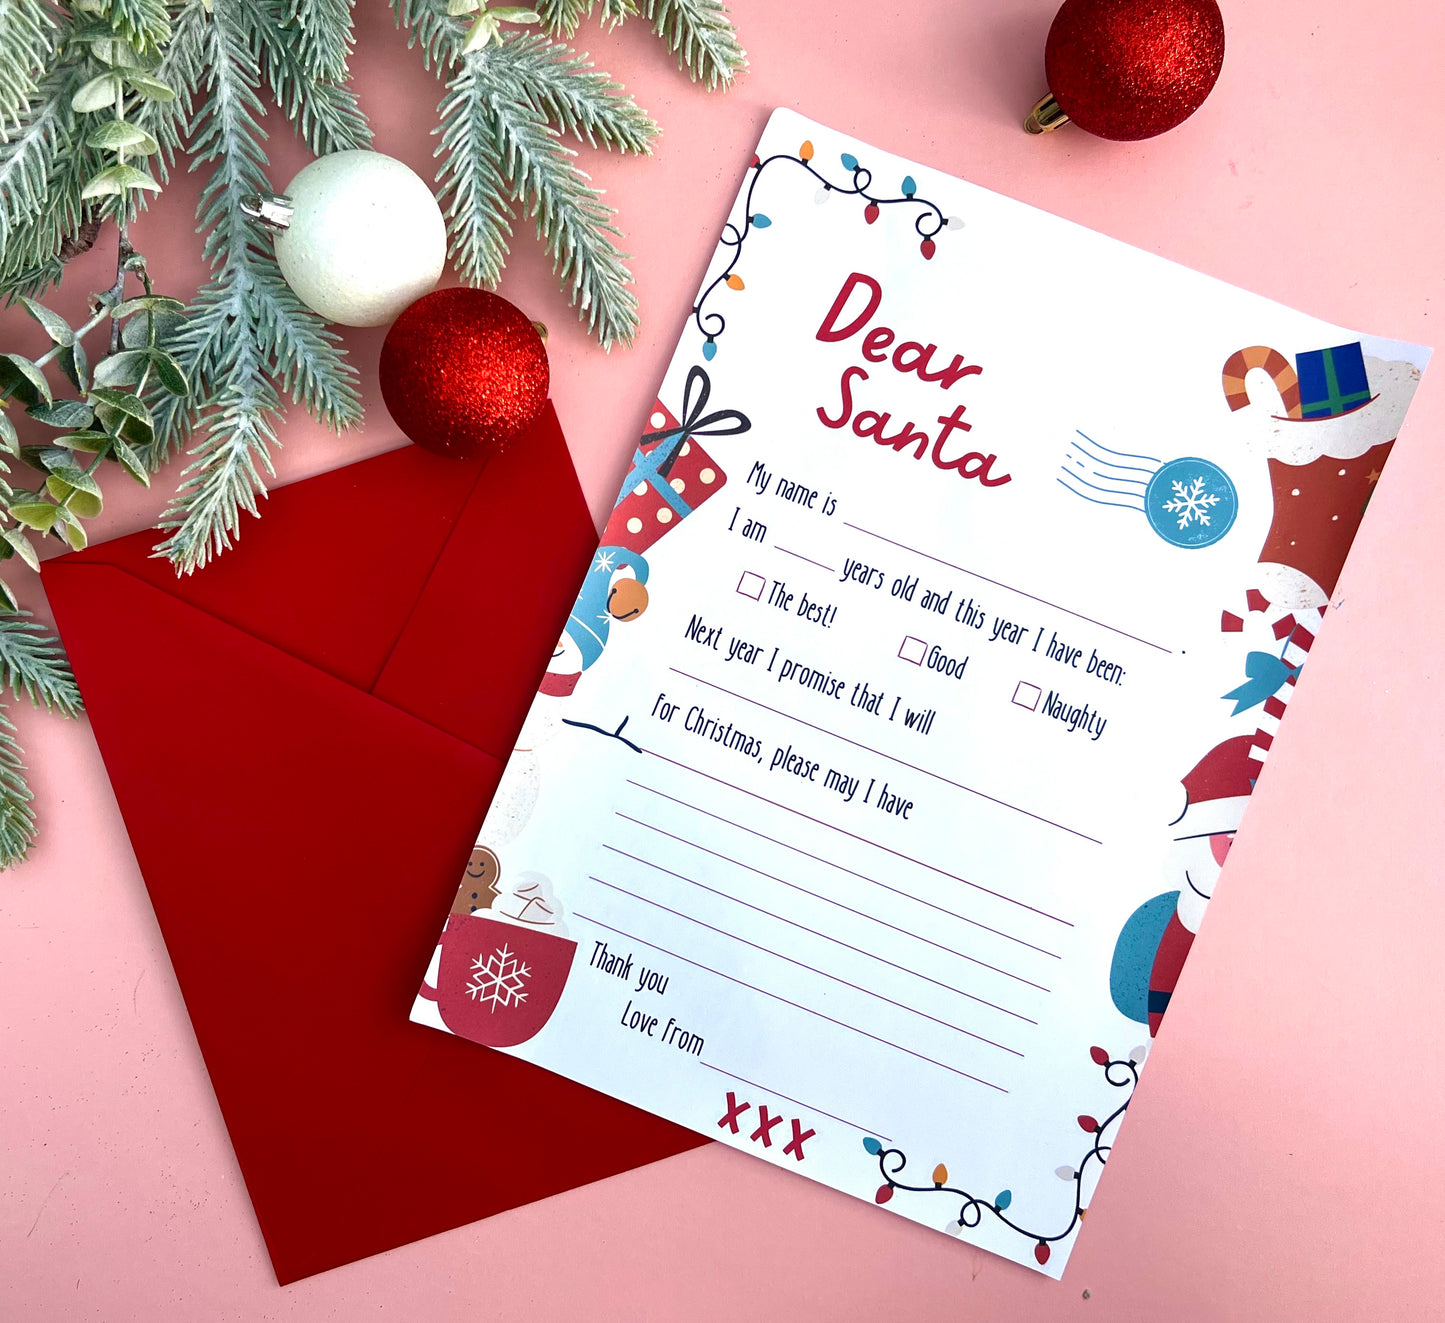 Dear
Santa
My name is .
I am years old and this year I have been:
The best! Good Naughty
Next year I promise that I will
For Christmas, please may I have
Thank you
Love from
XXX